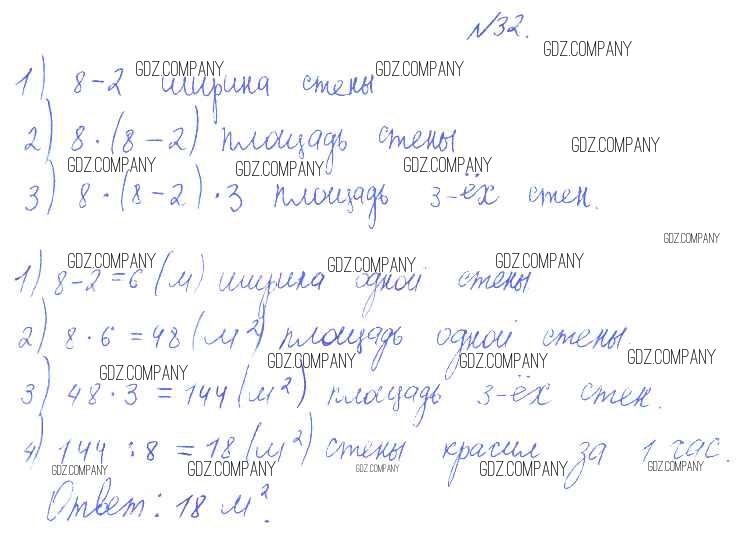 №32.
GDZ.COMPANY
GDZ.COMPANY GDZ.COMPANY
1) 8-2 ширина стены
2) 8·(8-2) площадь стены
GDZ.COMPANY
GDZ.COMPANY GDZ.COMPANY GDZ.COMPANY
3) 8·(8-2)·3 площадь 3-ёх стен.
GDZ.COMPANY
GDZ.COMPANY GDZ.COMPANY GDZ.COMPANY
1) 8-2=6 (м) ширина одной стены
2) 8·6=48 (м²) площадь одной стены.
GDZ.COMPANY GDZ.COMPANY GDZ.COMPANY GDZ.COMPANY
3) 48·3=144 (м²) площадь 3-ёх стен.
4) 144:8=18 (м²) стены красил за 1 час.
GDZ.COMPANY GDZ.COMPANY GDZ.COMPANY GDZ.COMPANY GDZ.COMPANY
Ответ: 18 м².